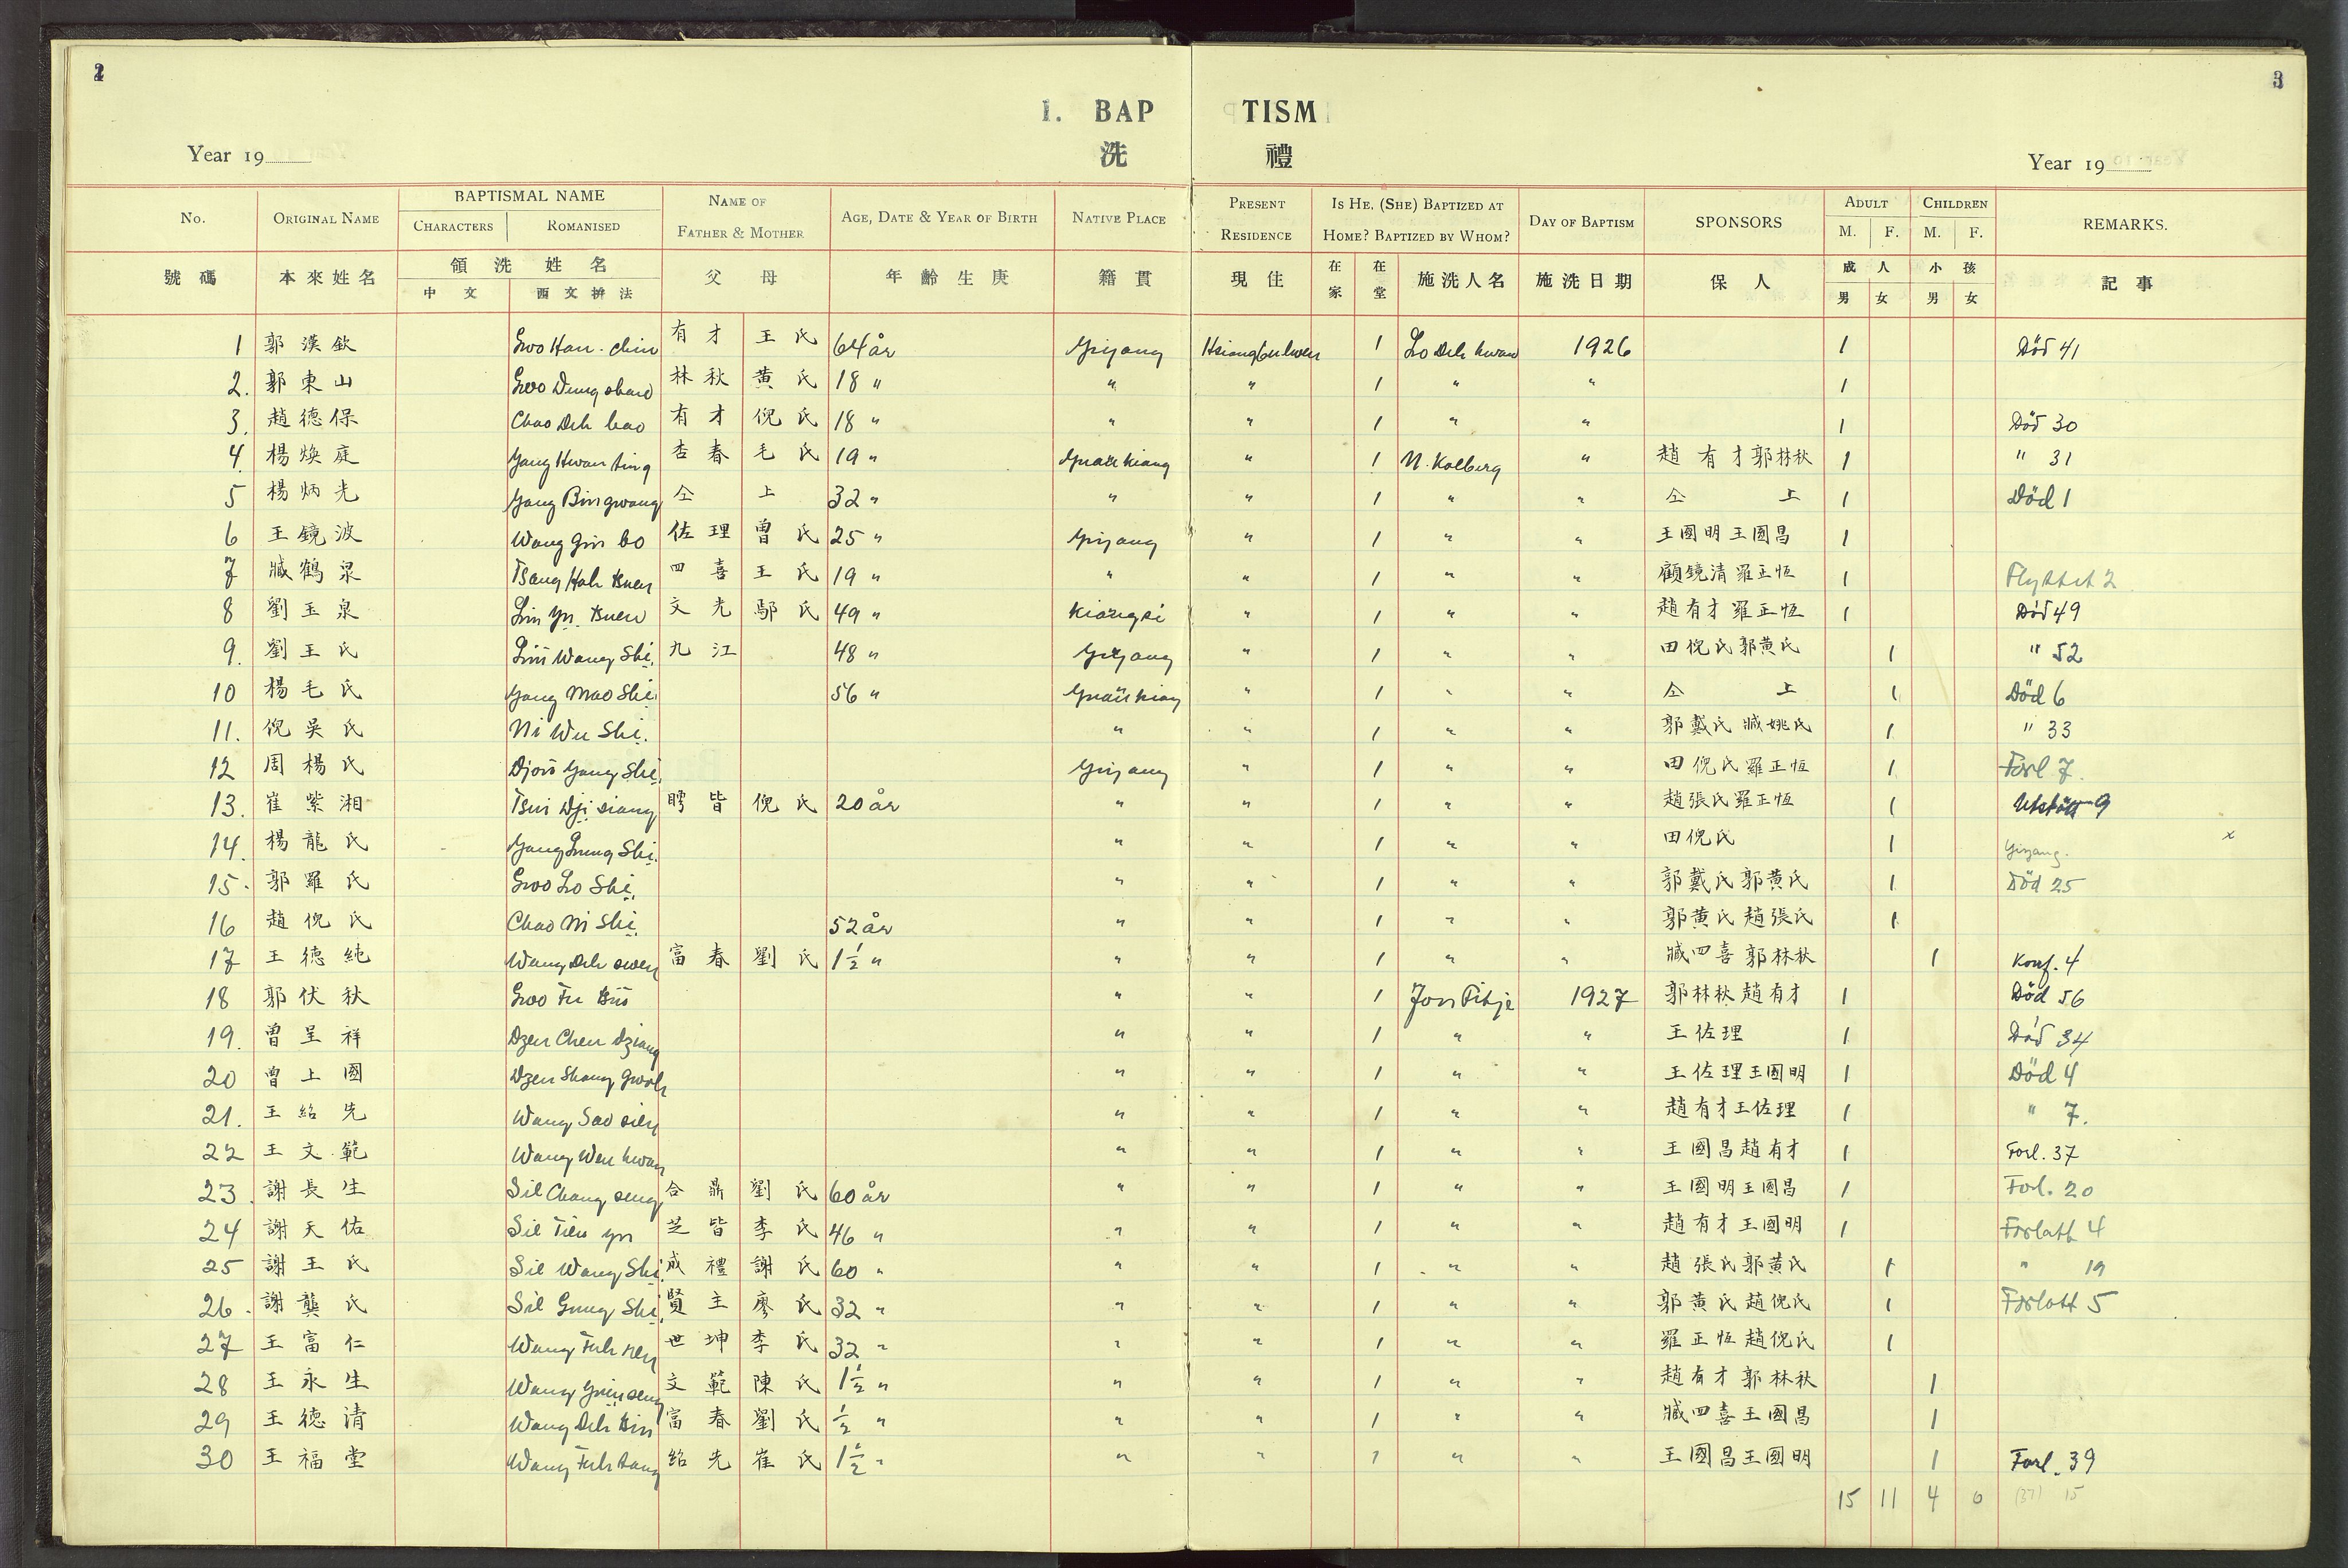 2
3
1. BAP TISM
洗 禮
Year 19
Year 19
No. ORIGINAL NAME BAPTISMAL NAME CHARACTERS ROMANISED NAME OF FATHER & MOTHER AGE, DATE & YEAR OF BIRTH NATIVE PLACE PRESENT RESIDENCE IS HE, (SHE) BAPTIZED AT HOME? BAPTIZED BY WHOM? DAY OF BAPTISM SPONSORS ADULT M. F. CHILDREN M. F. REMARKS.
號碼 本來姓名 領洗姓名 中文 西文拚法 父母 年齡生庚 籍貫 現住 在家 在堂 施洗人名 施洗日期 保人 成人 男 女 小孩 男 女 記事
1 郭漢欽 Gwo Han-chin 有才 王氏 64 år Yiyang 1 Lo Deh hwan 1926 1 Död 41
2. 郭東山 Gwo Dung shan 林秋 黄氏 18 " " " 1 " " 1
3. 趙德保 Chao Deh bao 有才 倪氏 18 " " " 1 " " 1 Död 30
4. 楊煥庭 Yang Hwan ting 杏春 毛氏 19 " Yuankiang " 1 N. Kolberg " 趙有才郭林秋 1 " 31
5 楊炳光 Yang Bin gwang 仝上 32 " " " 1 " " 仝上 1 Död 1
6 王鏡波 Wang Gin bo 佐理 曾氏 25 " Yiyang " 1 " " 王國明王國昌 1
7 臧鶴泉 Tsang Hoh tsuen 四喜 王氏 19 " " " 1 " " 顧鏡清羅正恆 1 Flyttet 2
8 劉玉泉 Liu Yu tsuen 文光 鄢氏 49 " Kiangsi " 1 " " 趙有才羅正恆 1 Död 49
9. 劉王氏 Liu Wang Shi. 九江 48 " Yiyang " 1 " " 田倪氏郭黄氏 1 " 52
10 楊毛氏 Yang Mao Shi 56 " Yuankiang " 1 " " 仝上 1 Död 6
11. 倪吳氏 Ni Wu Shi. " " 1 " " 郭戴氏臧姚氏 1 " 33
12 周楊氏 Djou Yang Shi. Yiyang " 1 " " 田倪氏羅正恆 1 Forl 7.
13. 崔紫湘 Tsui Dji siang 聘皆 倪氏 20 år " " 1 " " 趙張氏羅正恆 1 9
14. 楊龍氏 Yang Lung Shi. " " 1 " " 田倪氏 1 Yiyang. x
15. 郭羅氏 Gwo Lo Shi. " " 1 " " 郭戴氏郭黄氏 1 Död 25
16 趙倪氏 Chao Ni Shi. 52 år " " 1 " " 郭黄氏趙張氏 1
17 王德純 Wang Deh swen 富春 劉氏 1½ " " " 1 " " 臧四喜郭林秋 1 Konf. 4
18 郭伏秋 Gwo Fu tsiu " " 1 1927 郭林秋趙有才 1 Död 56
19. 曾呈祥 Dzen Chen dziang " " 1 " " 王佐理 1 Död 34
20 曾上國 Dzen Shang Gwoh " " 1 " " 王佐理王國明 1 Död 4
21. 王紹先 Wang Sao sien " " 1 " " 趙有才王佐理 1 " 7.
22 王文範 Wang Wen hwan " " 1 " " 王國昌趙有才 1 Forl. 37
23. 謝長生 Sie Chang seng 合鼎 劉氏 60 år " " 1 " " 王國明王國昌 1 Forl. 20
24 謝天佑 Sie Tien yu 芝皆 李氏 46 " " " 1 " " 趙有才王國明 1 Forlatt 4
25 謝王氏 Sie Wang Shi. 成禮 謝氏 60 " " " 1 " " 趙張氏郭黄氏 1 " 19
26. 謝龔氏 Sie Gung Shi. 賢主 廖氏 32 " " " 1 " " 郭黄氏趙倪氏 1 Forlatt 5
27 王富仁 Wang Fuh ren 世坤 李氏 32 " " " 1 " " 羅正恆趙倪氏 1
28 王永生 Wang Yuin seng 文範 陳氏 1½ " " " 1 " " 趙有才郭林秋 1
29 王德清 Wang Deh tsin 富春 劉氏 ½ " " " 1 " " 臧四喜王國昌 1
30 王福堂 Wang Fuh tang 紹先 崔氏 1½ " " " 1 " " 王國昌王國明 1 Forl. 39
15 11 4 0 (37) 15